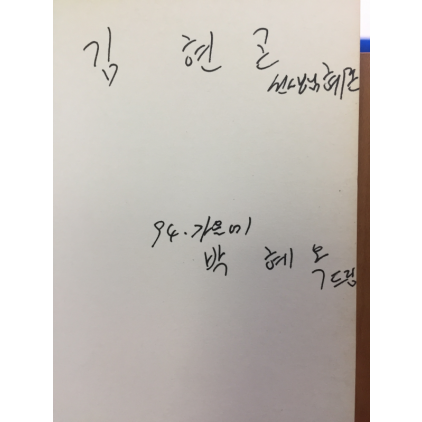 김 현 곤
선생님 혜존
94. 가을에
박 혜 옥
드림